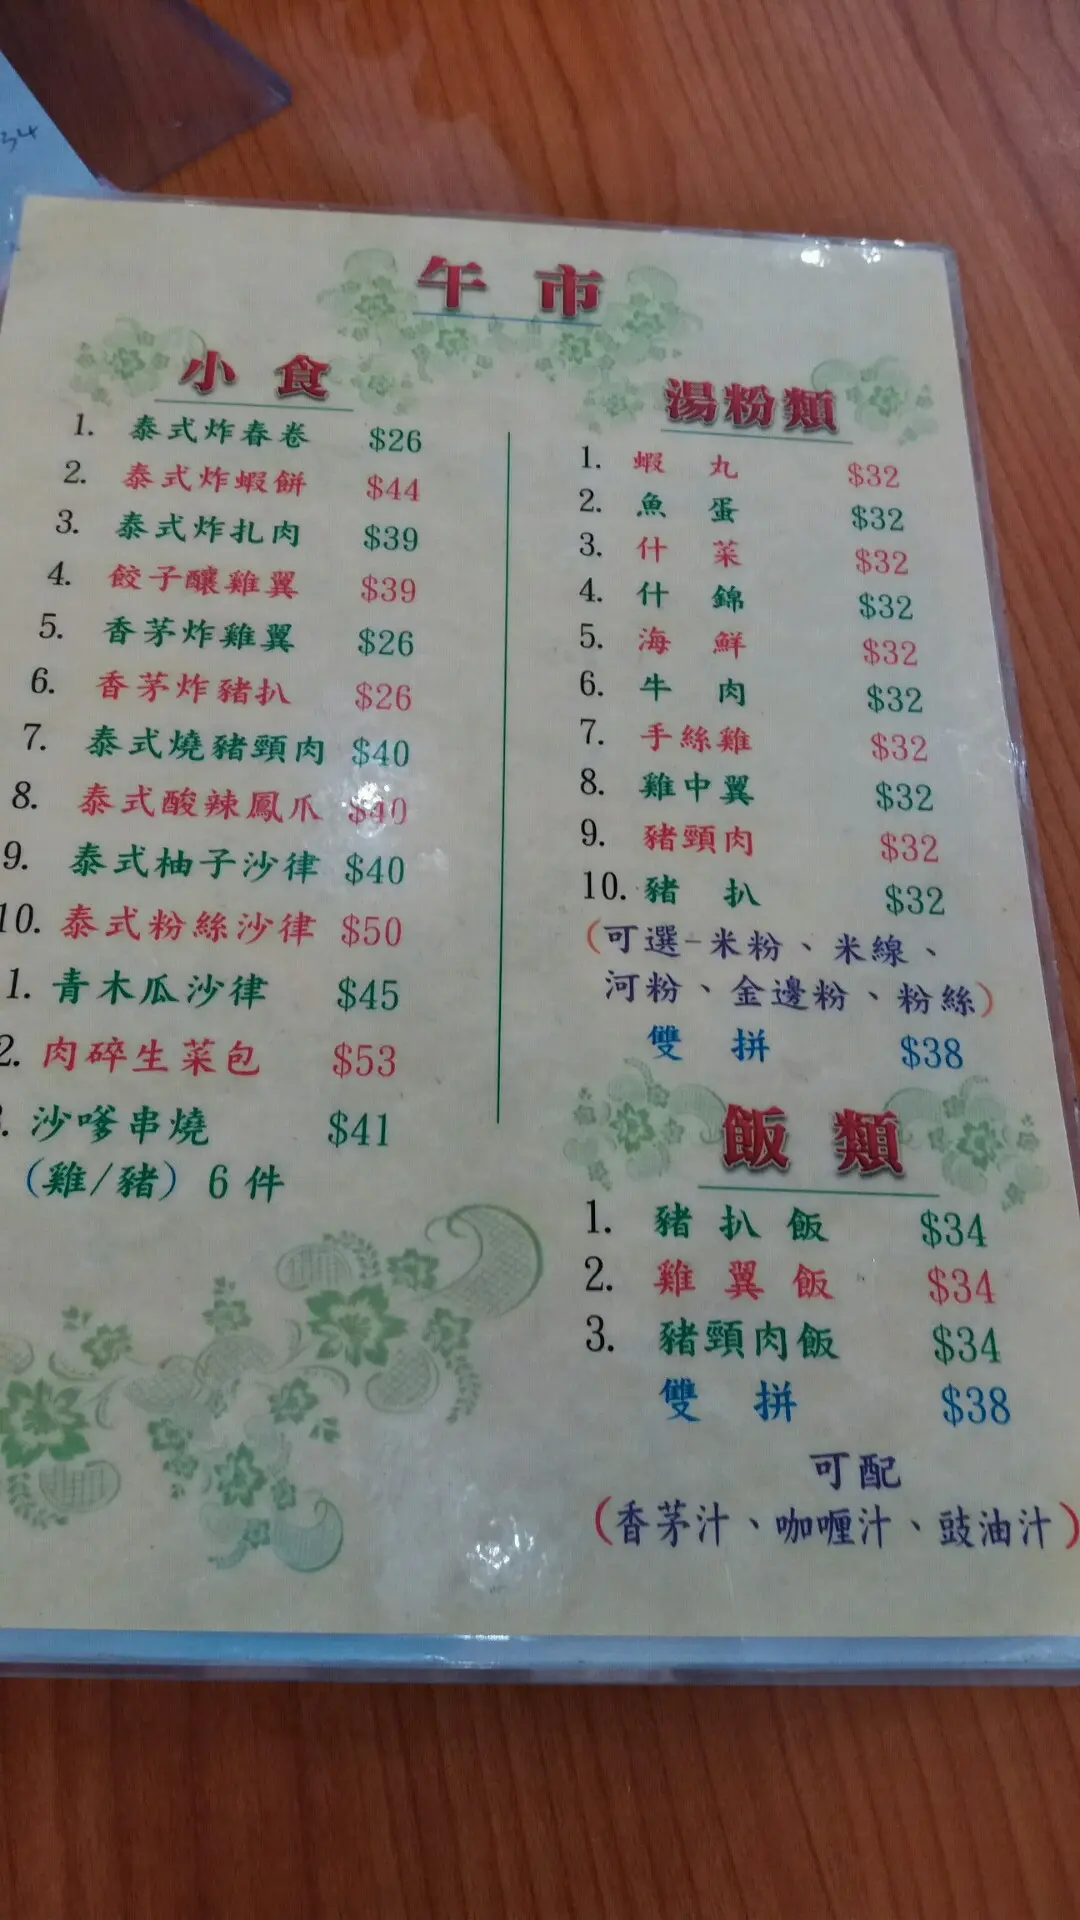 34
午市
小食
1. 泰式炸春卷 $26
2. 泰式炸蝦餅 $44
3. 泰式炸扎肉 $39
4. 餃子釀雞翼 $39
5. 香茅炸雞翼 $26
6. 香茅炸豬扒 $26
7. 泰式燒豬頸肉 $40
8. 泰式酸辣鳳爪 $40
9. 泰式柚子沙律 $40
10. 泰式粉絲沙律 $50
1. 青木瓜沙律 $45
2. 肉碎生菜包 $53
. 沙嗲串燒 $41
(雞/豬) 6件
湯粉類
1. 蝦丸 $32
2. 魚蛋 $32
3. 什菜 $32
4. 什錦 $32
5. 海鮮 $32
6. 牛肉 $32
7. 手絲雞 $32
8. 雞中翼 $32
9. 豬頸肉 $32
10. 豬扒 $32
(可選-米粉、米線、
河粉、金邊粉、粉絲)
雙拼 $38
飯類
1. 豬扒飯 $34
2. 雞翼飯 $34
3. 豬頸肉飯 $34
雙拼 $38
可配
(香茅汁、咖喱汁、豉油汁)